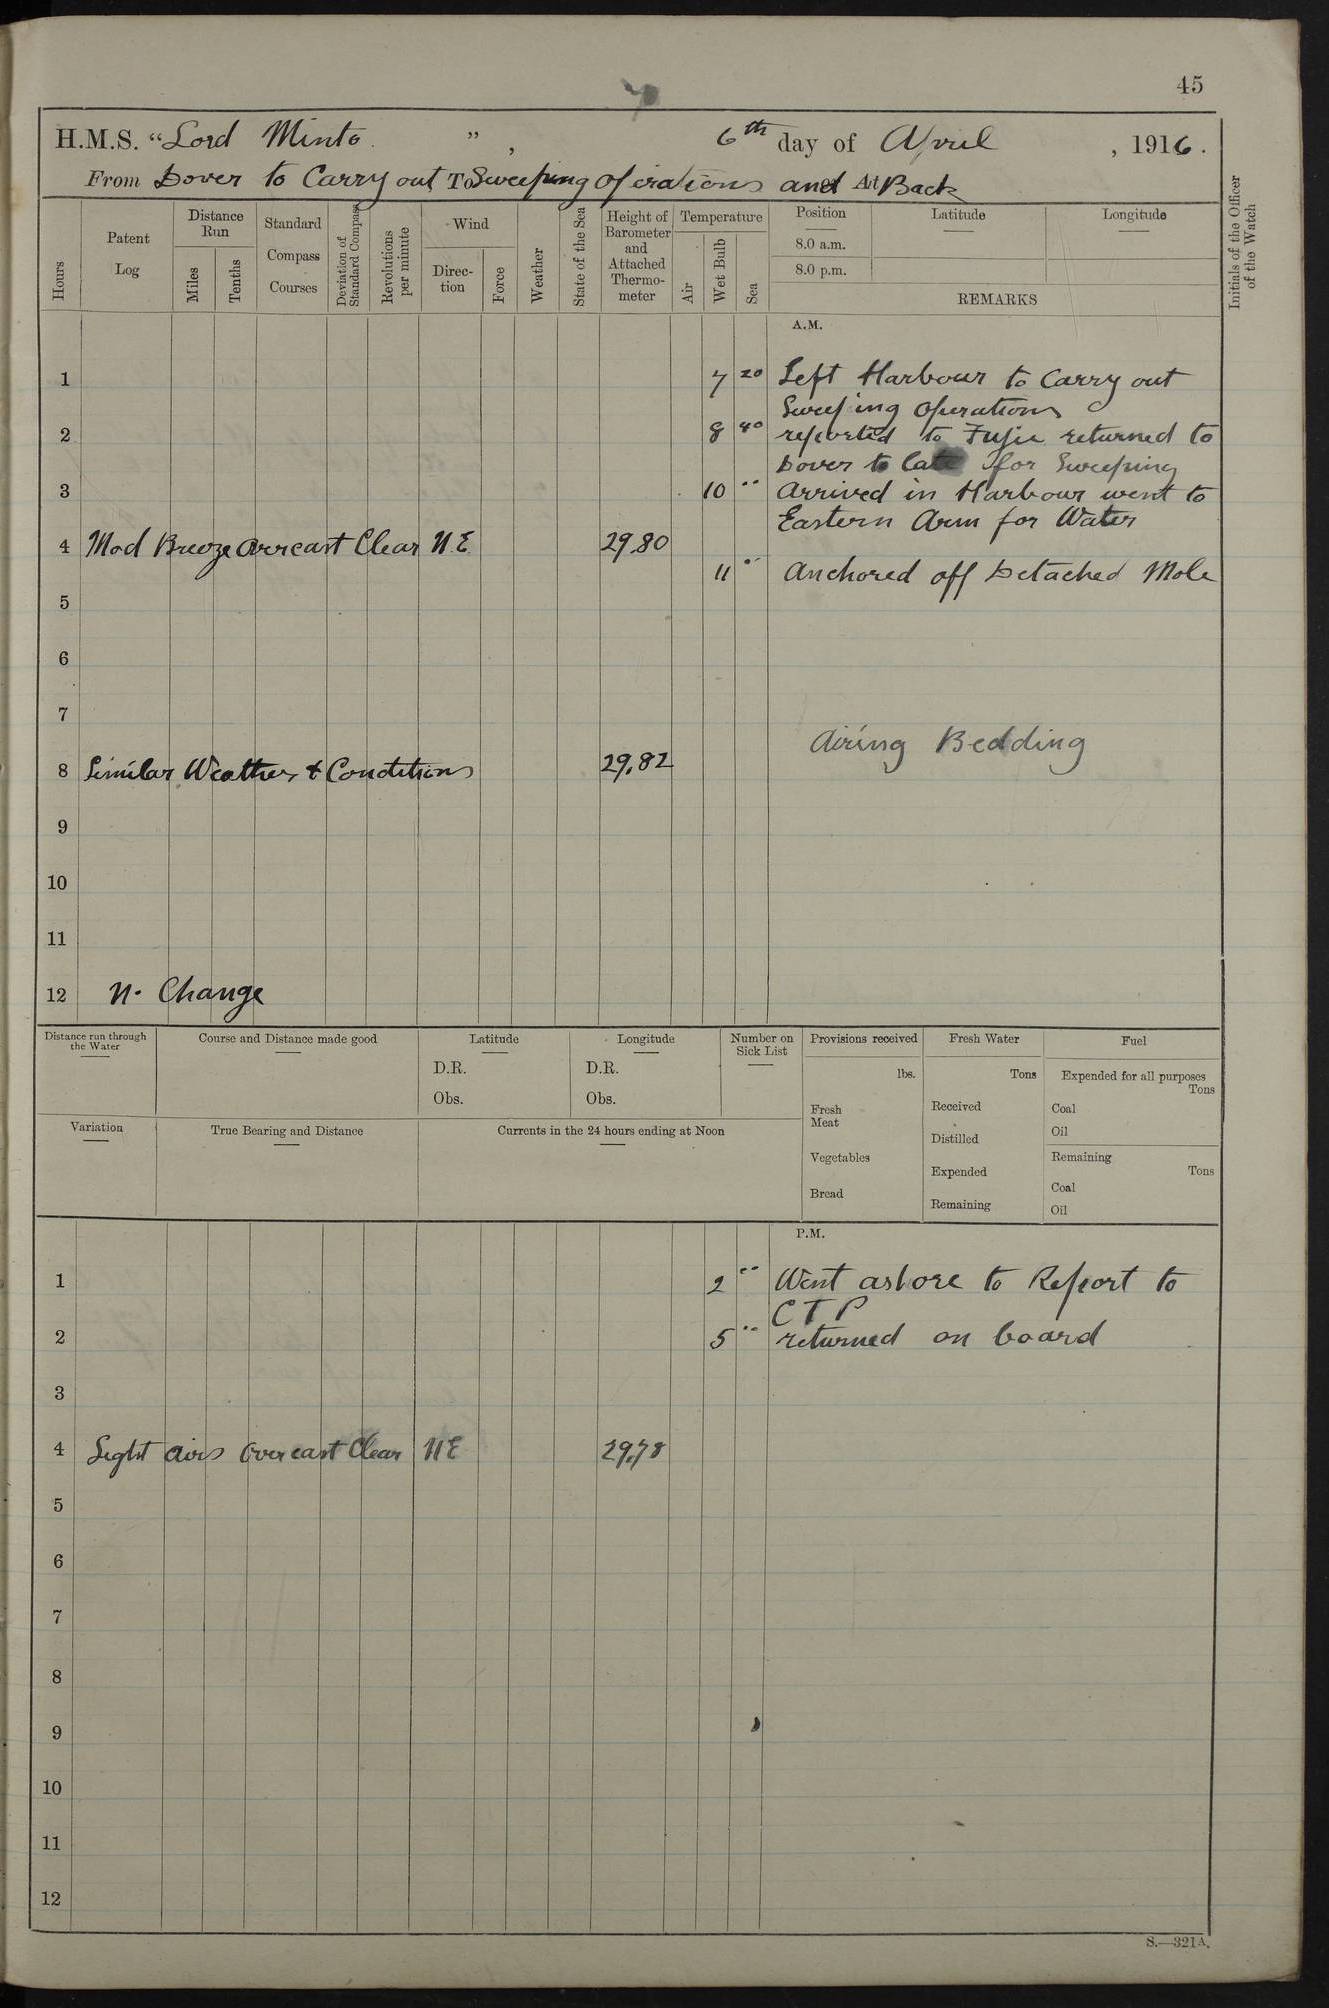 45
H.M.S. “Lord Minto ”, 6th day of April, 1916.
From Dover to Carry out To Sweeping operations and At Back
Hours
Patent Log
Distance Run
Miles
Tenths
Standard Compass Courses
Deviation of Standard Compass
Revolutions per minute
Wind
Direction
Force
Weather
State of the Sea
Height of Barometer and Attached Thermometer
Temperature
Air
Wet Bulb
Sea
Position
8.0 a.m.
8.0 p.m.
Latitude
Longitude
REMARKS
Initials of the Officer of the Watch
A.M.
1 7 20 Left Harbour to Carry out
Sweeping operations
2 8 40 reported to returned to
Dover to late for Sweeping
3 10 .. Arrived in Harbour went to
Eastern Arm for Water
4 Mod Breeze Overcast Clear N.E. 29.80
11 .. Anchored off Detached Mole
5
6
7
Airing Bedding
8 Similar Weather & Conditions 29.82
9
10
11
12 No Change
Distance run through the Water
Course and Distance made good
Latitude
D.R.
Obs.
Longitude
D.R.
Obs.
Number on Sick List
Provisions received
lbs.
Fresh Meat
Vegetables
Bread
Fresh Water
Tons
Received
Distilled
Expended
Remaining
Fuel
Expended for all purposes
Tons
Coal
Oil
Remaining
Tons
Coal
Oil
Variation
True Bearing and Distance
Currents in the 24 hours ending at Noon
P.M.
1 2 .. Went ashore to Report to
C T P
2 5 .. returned on board
3
4 Light airs Overcast Clear NE 29.78
5
6
7
8
9
10
11
12
S.—321A.